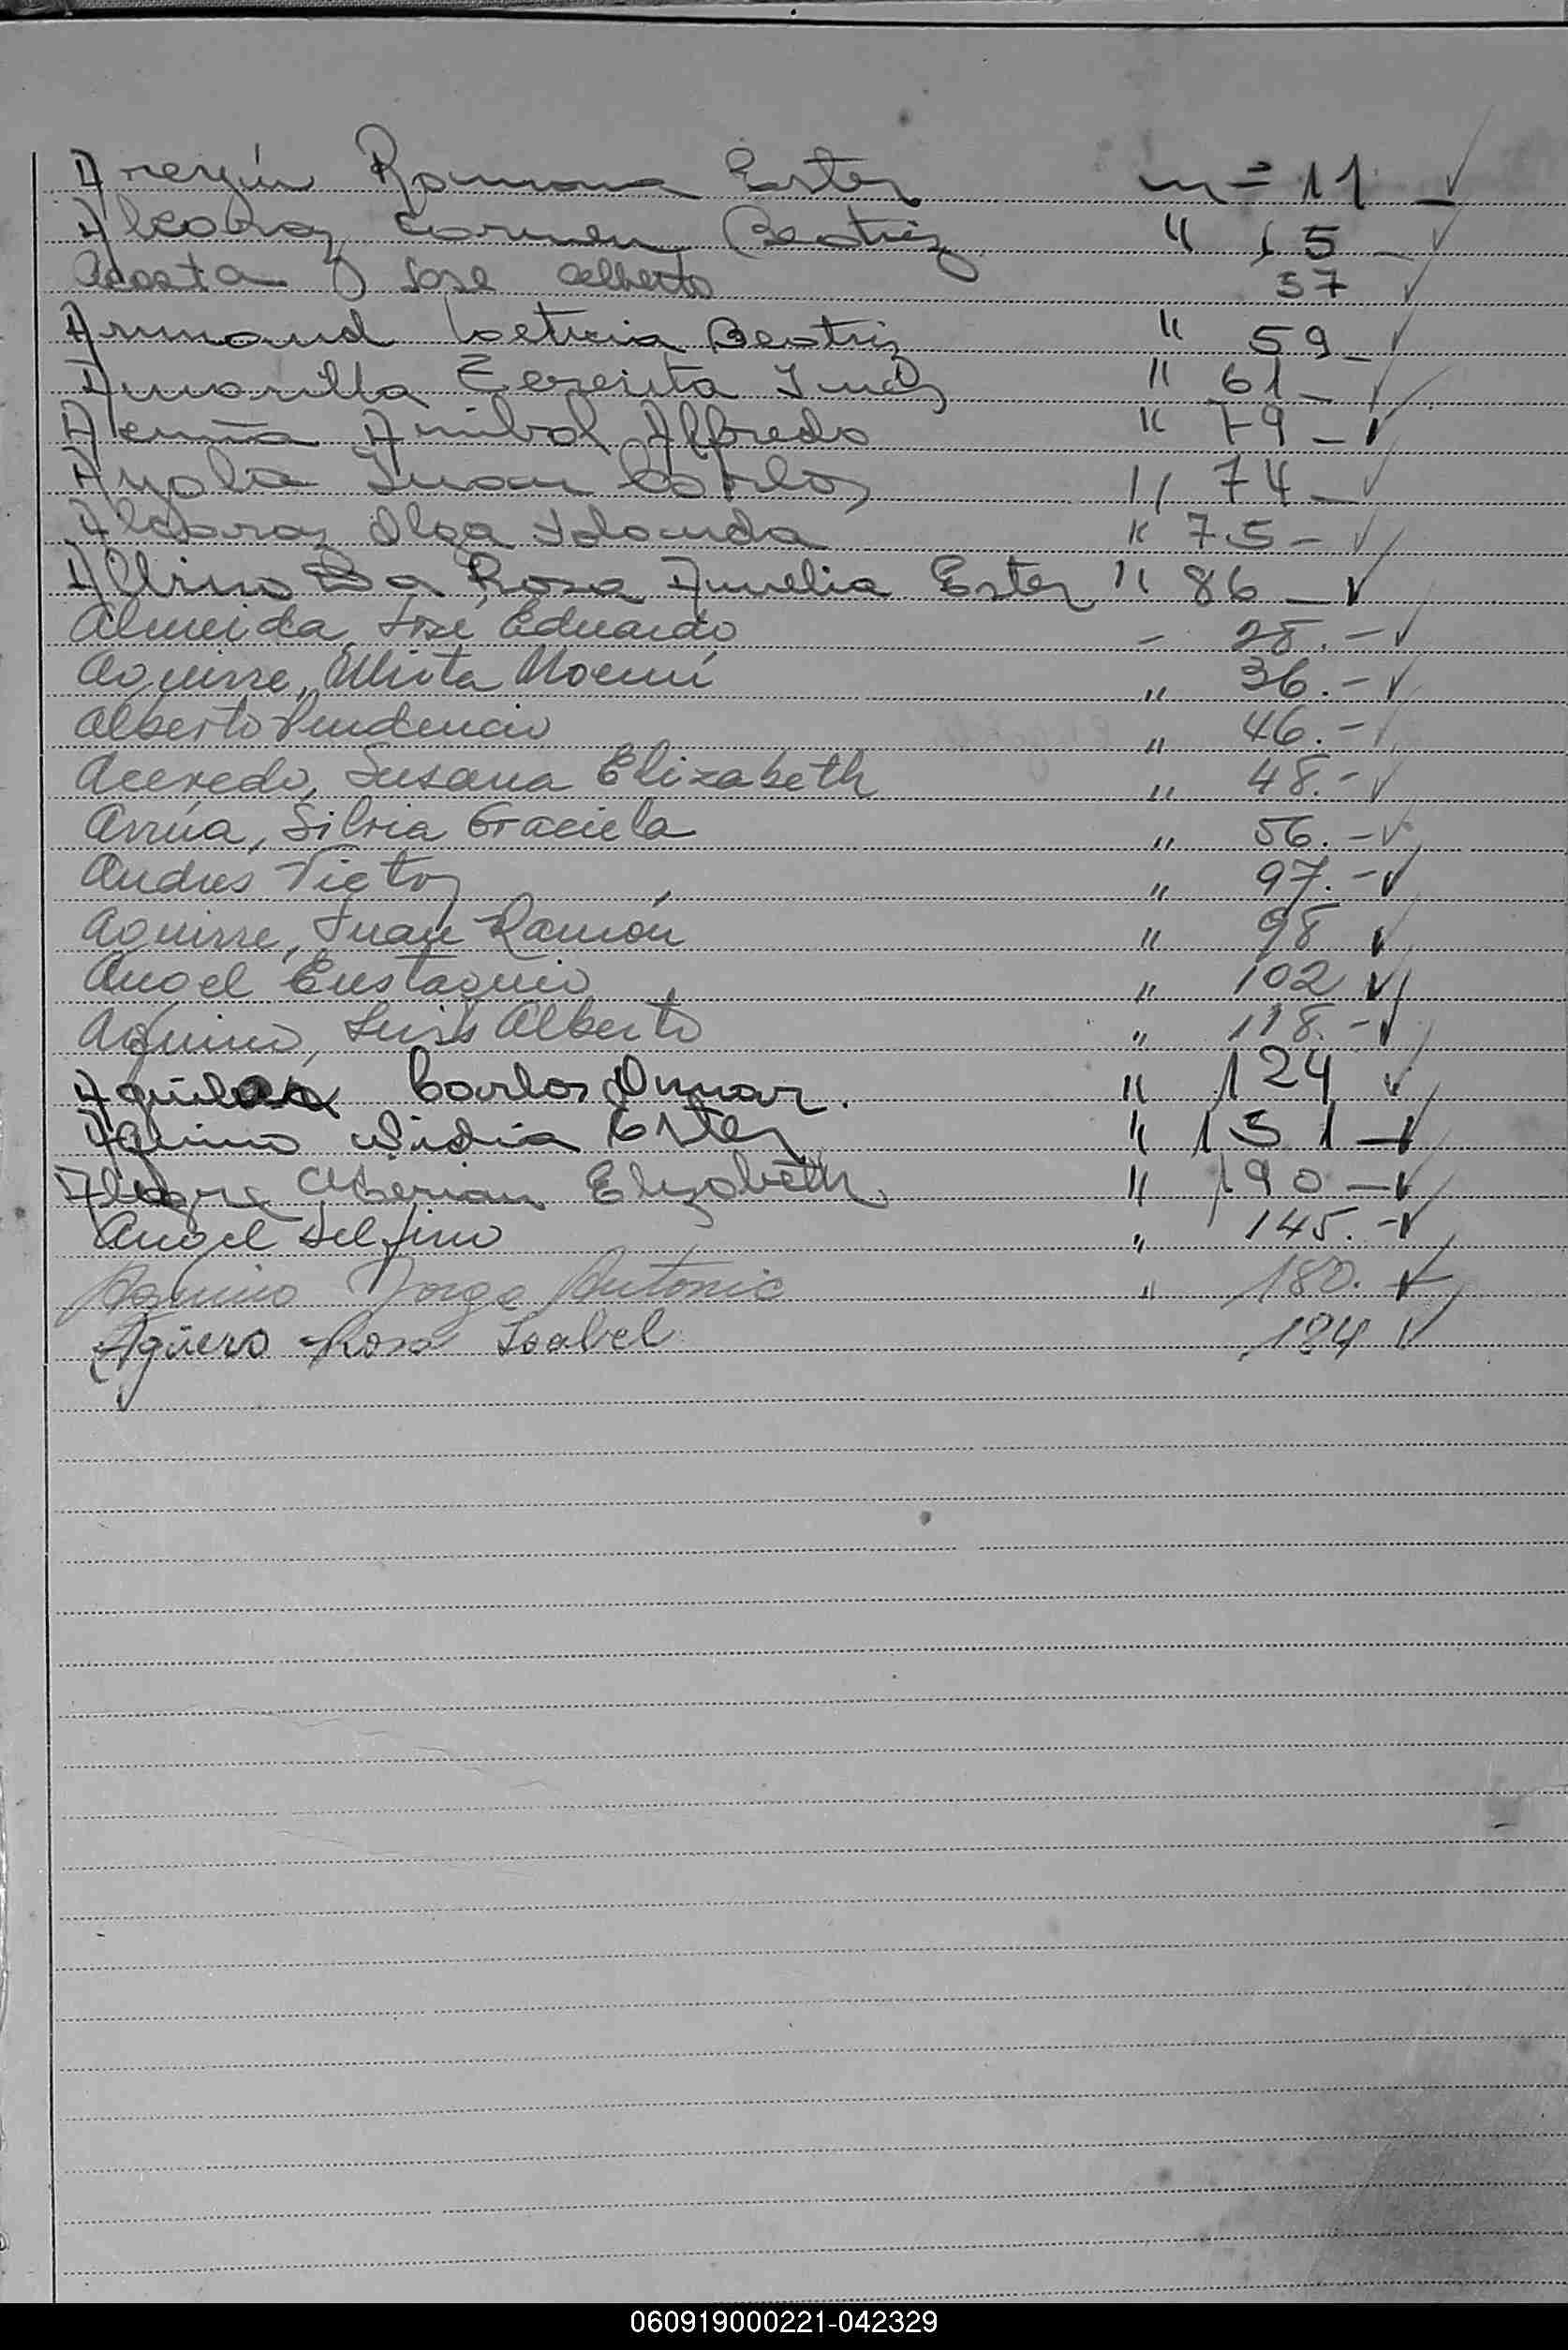 Aregín Ramona Ester n = 11 –
Alcaraz Carmen Beatriz " 15 –
Acosta José Alberto 37
Armand Leticia Beatriz " 59 –
Amarilla Teresita Inés " 61 –
Acuña Anibal Alfredo " 79 –
Ayala Juan Carlos " 74 –
Alcaraz Olga Yolanda " 75 –
Albino Da Rosa Amelia Ester " 86 –
Almeida, José Eduardo – 28. –
Aguirre, Mirta Noemí " 36. –
Alberto Prudencio " 46. –
Acevedo, Susana Elizabeth " 48. –
Arrúa, Silvia Graciela " 56. –
Andres Victor " 97. –
Aguirre, Juan Ramón " 98
Angel Eustaquio " 102
Aquino, Luis Alberto " 118. –
Carlos Omar. " 124
Aquino Lidia Ester " 131 –
Alegre Miriam Elizabeth " 190 –
Angel Delfino " 145. –
Aquino Jorge Antonio " 180.
Agüero Rosa Isabel 184
060919000221-042329